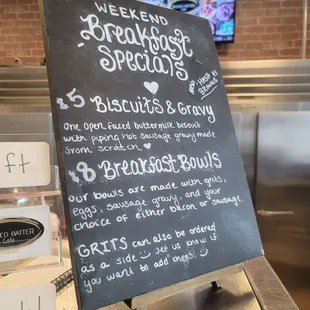 WEEKEND
Breakfast
Specials
NEW - Hash
Browns
$5 Biscuits & Gravy
One open faced buttermilk biscuit
with piping hot sausage gravy made
from scratch
$8 Breakfast Bowls
Our bowls are made with grits,
eggs, sausage gravy, and your
choice of either bacon or sausage.
GRITS can also be ordered
as a side let us know if
you want to add cheese!
ft
BATTER
Cafe